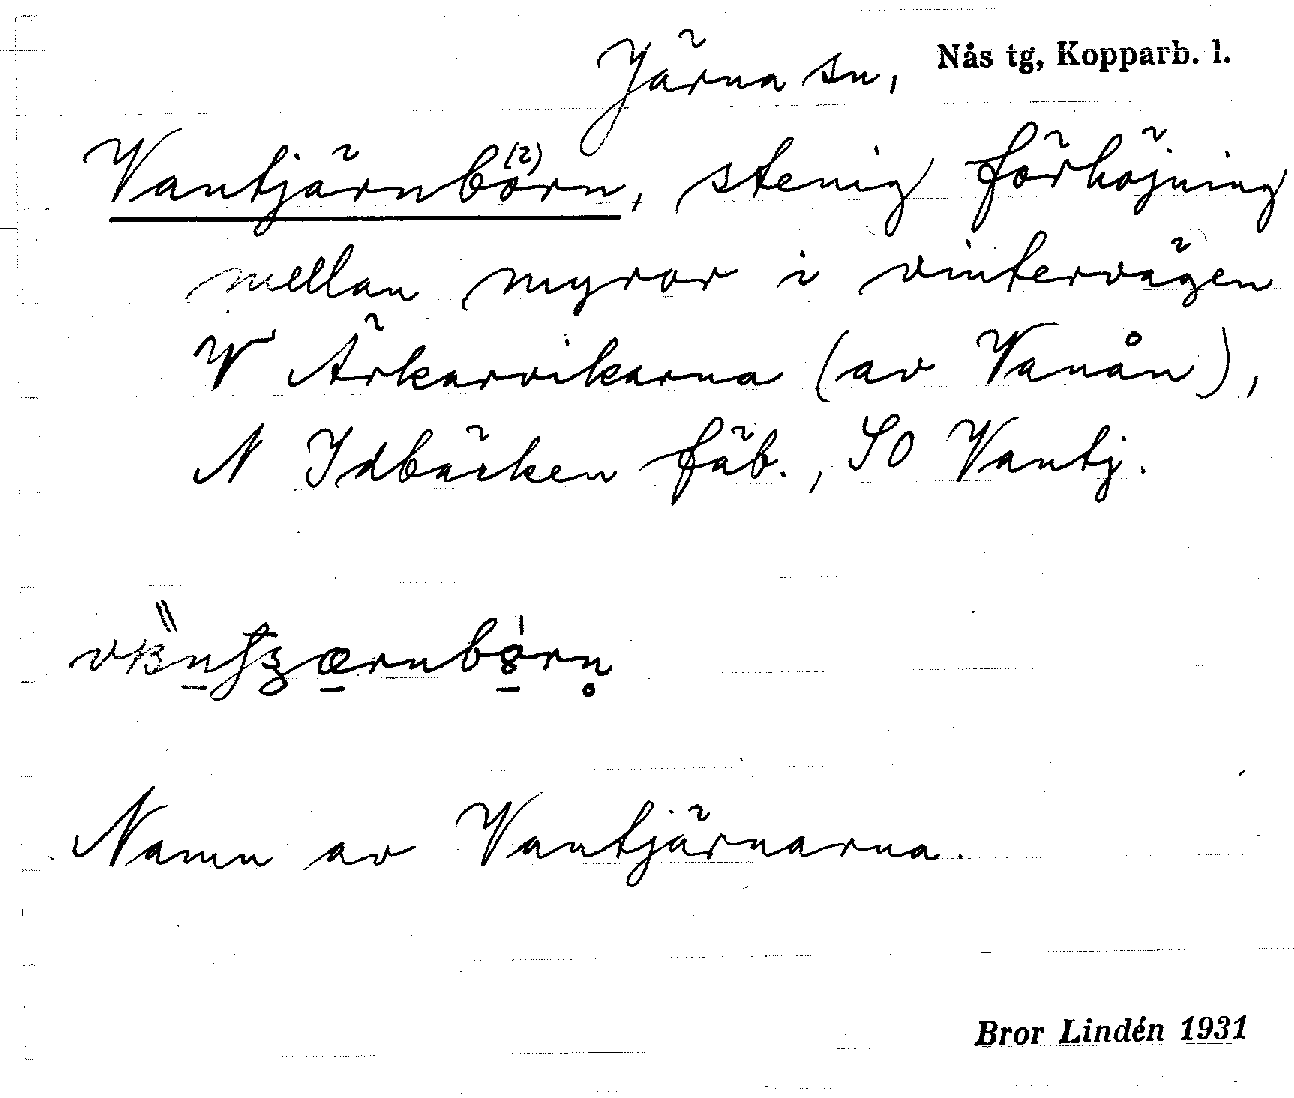 Järna sn, Nås tg, Kopparb. l.
Vantjärnbo(2)rn, stenig förhöjning
mellan myror i vintervägen
V Ärkarvikarna (av Vanån),
N Idbäcken fäb., SO Vantj.
Namn av Vantjärnarna.
Bror Lindén 1931